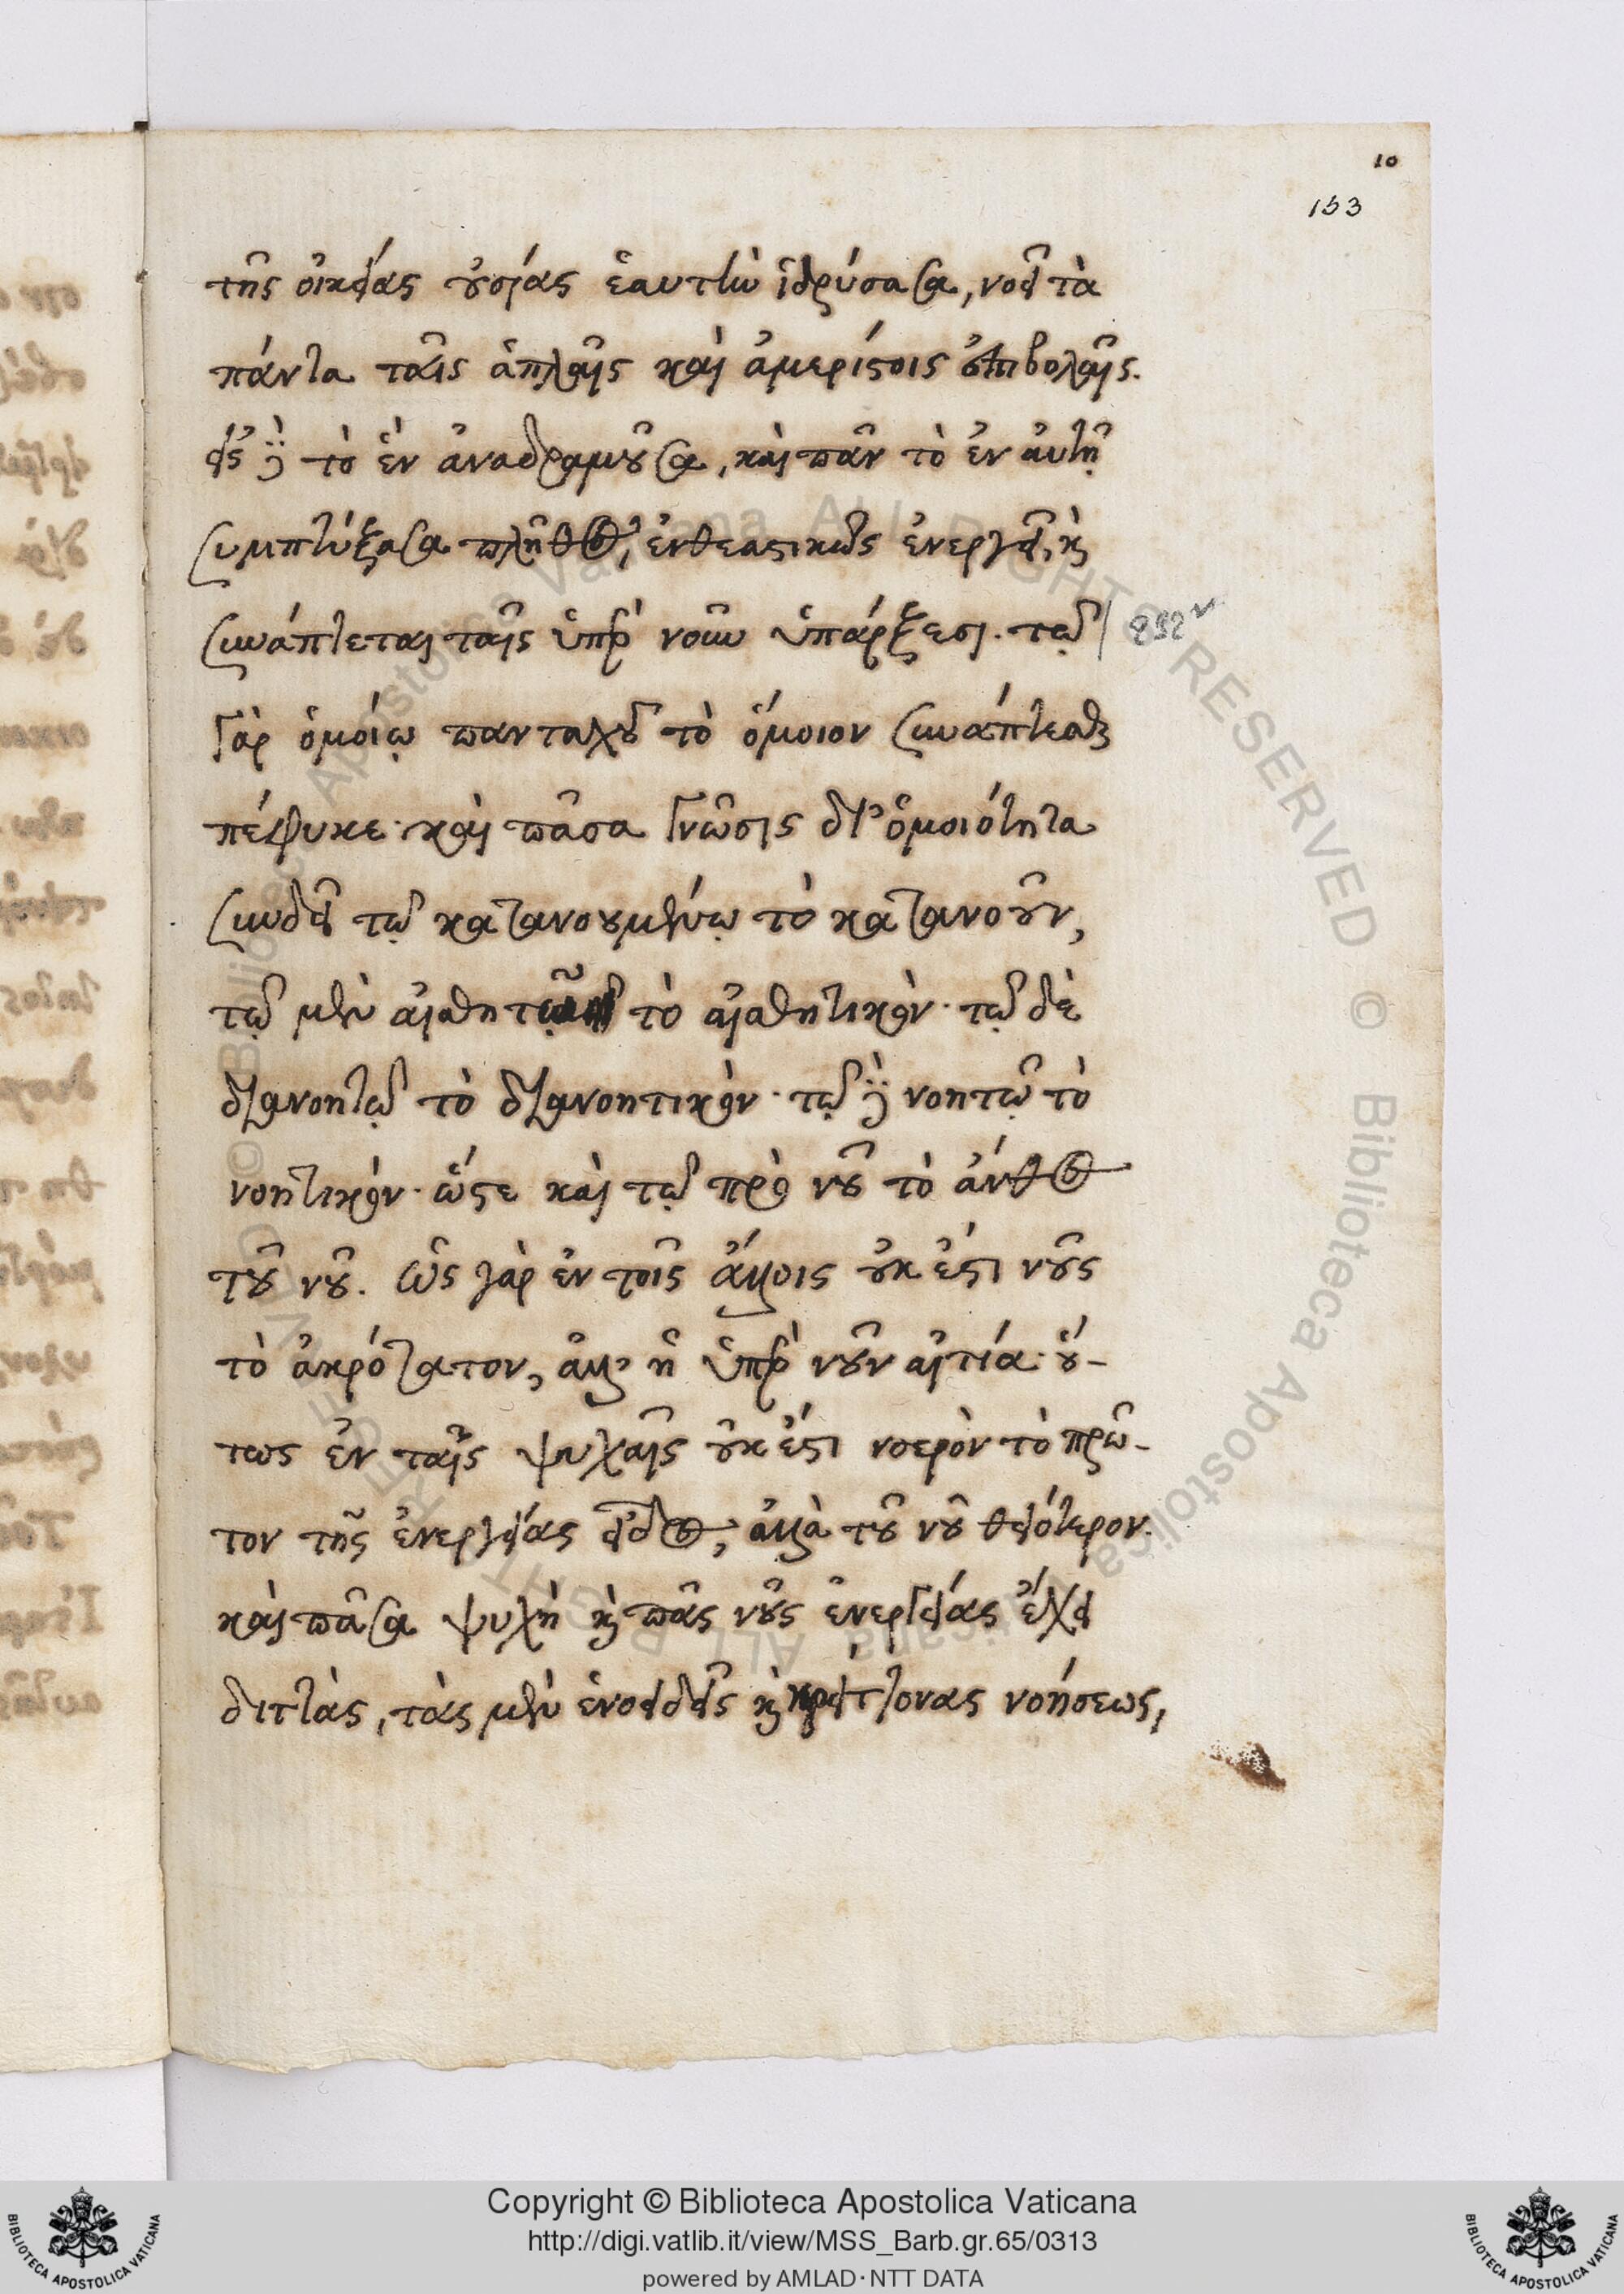 10
153
τῆς οἰκείας οὐσίας ἑαυτὴν ἱδρύσασα, νοεῖ τὰ
πάντα ταῖς ἁπλαῖς καὶ ἀμερίστοις ἐπιβολαῖς.
εἰς δὲ τὸ ἓν ἀναδραμοῦσα, καὶ πᾶν τὸ ἐν αὐτῇ
συμπτύξασα πλῆθος, ἐνθεαστικῶς ἐνεργεῖ, καὶ
συνάπτεται ταῖς ὑπὲρ νοῦν ὑπάρξεσι. τῷ
γὰρ ὁμοίῳ πανταχοῦ τὸ ὅμοιον συνάπτεσθαι
πέφυκε· καὶ πᾶσα γνῶσις δι' ὁμοιότητα
συνδεῖ τῷ κατανουμένῳ τὸ κατανοοῦν,
τῷ μὲν αἰσθητῷ τὸ αἰσθητικόν· τῷ δὲ
διανοητῷ τὸ διανοητικόν· τῷ δὲ νοητῷ τὸ
νοητικόν· ὥστε καὶ τῷ πρὸ νοῦ τὸ ἄνθος
τοῦ νοῦ. ὡς γὰρ ἐν τοῖς ἄλλοις οὐκ ἔστι νοῦς
τὸ ἀκρότατον, ἀλλ' ἡ ὑπὲρ νοῦν αἰτία· οὕ-
τως ἐν ταῖς ψυχαῖς οὐκ ἔστι νοερὸν τὸ πρῶ-
τον τῆς ἐνεργείας εἶδος, ἀλλὰ τοῦ νοῦ θειότερον.
καὶ πᾶσα ψυχὴ καὶ πᾶς νοῦς ἐνεργείας ἔχει
διττὰς, τὰς μὲν ἑνοειδεῖς καὶ κρείττονας νοήσεως,
292v
Copyright © Biblioteca Apostolica Vaticana
http://digi.vatlib.it/view/MSS_Barb.gr.65/0313
powered by AMLAD·NTT DATA
BIBLIOTECA APOSTOLICA VATICANA
BIBLIOTECA APOSTOLICA VATICANA